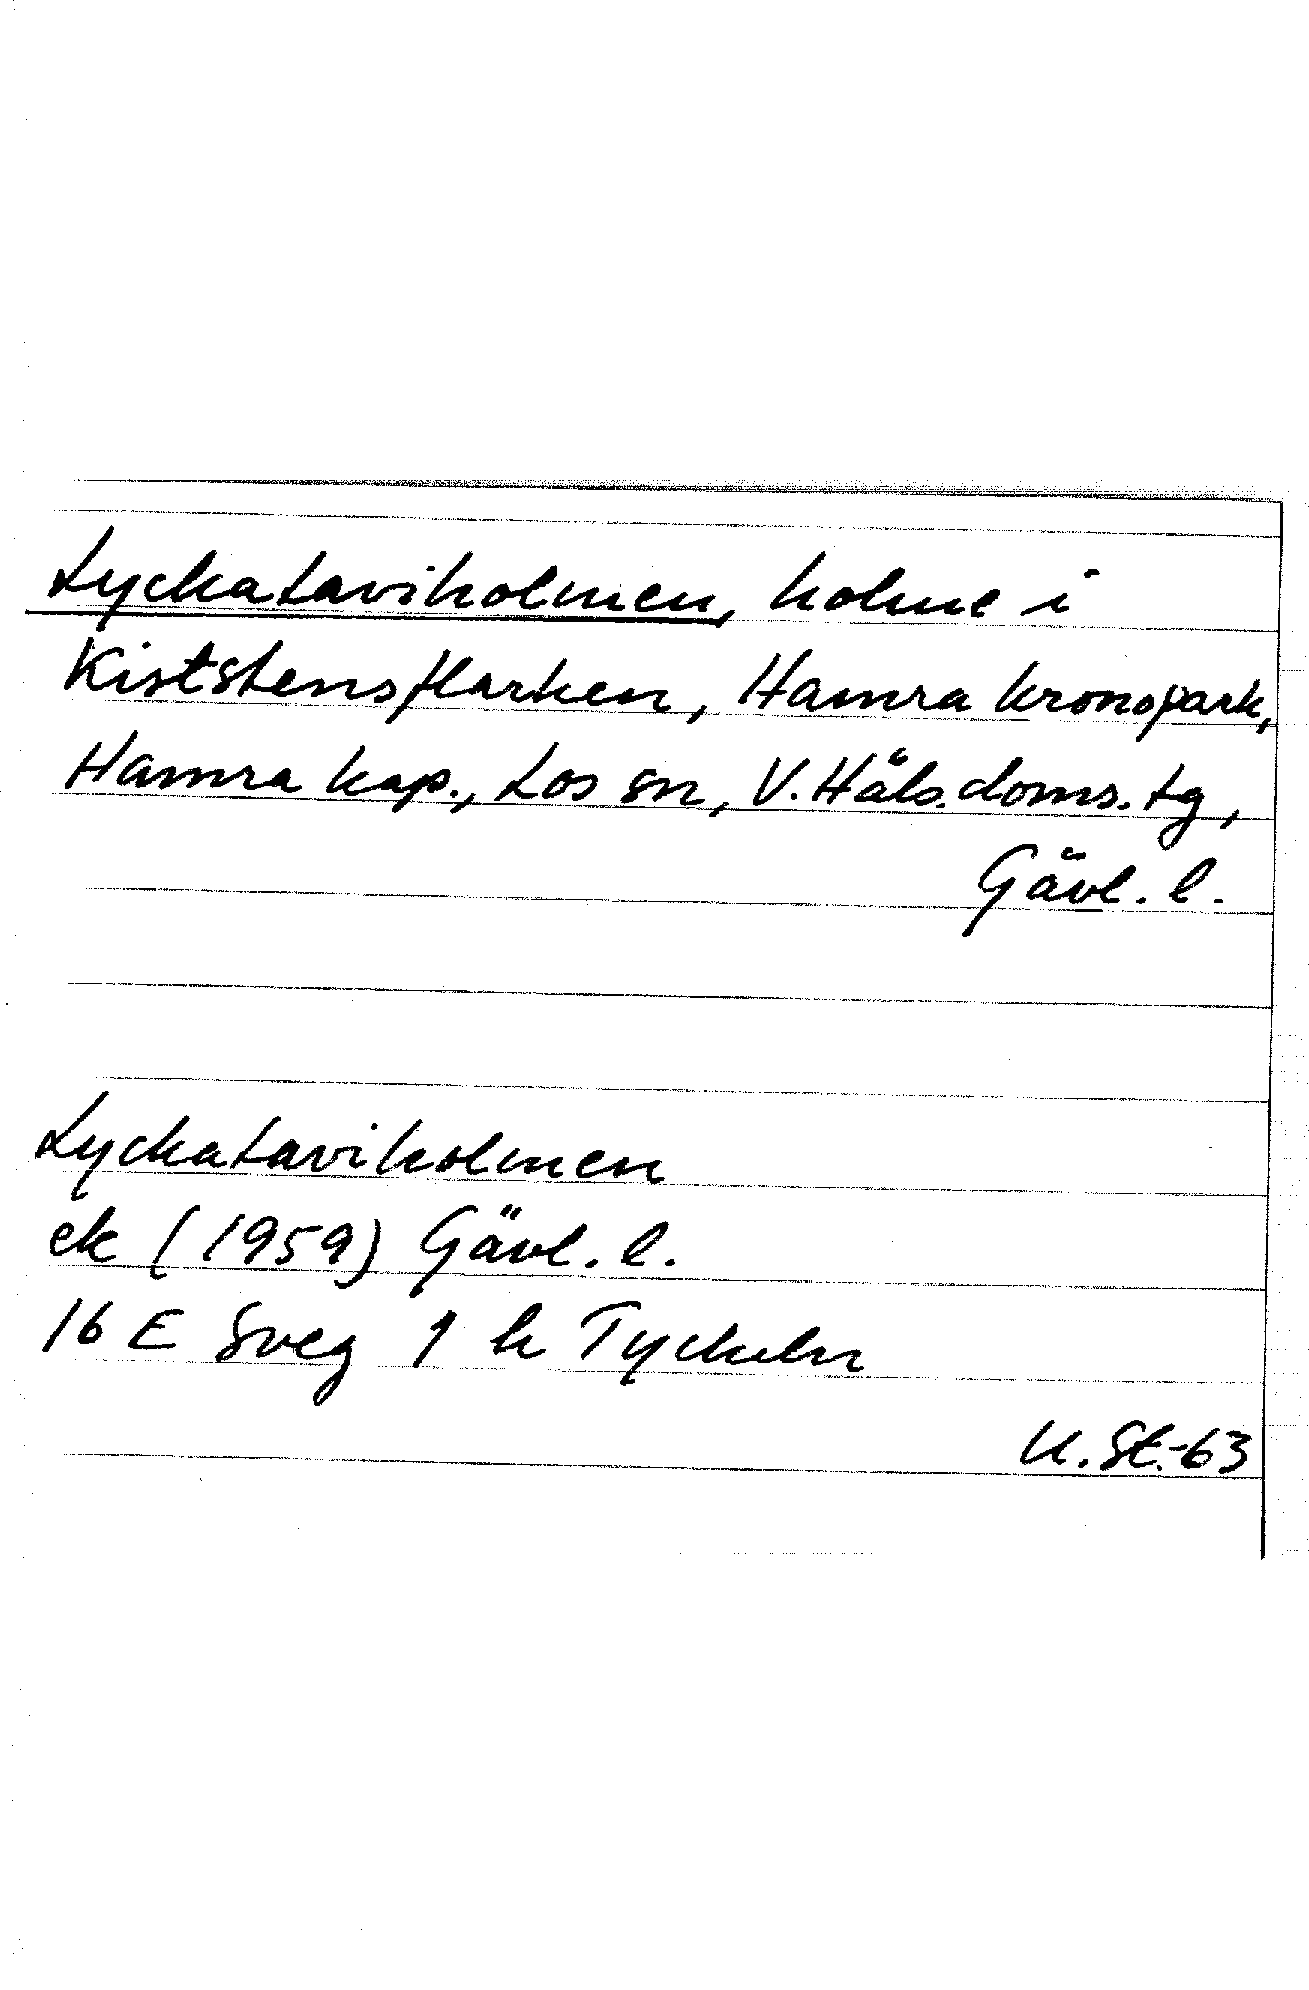 Lyckataviholmen, holme i
Kiststensflarken, Hamra kronopark,
Hamra kap., Los sn, V. Häls. doms. tg,
Gävl. l.
Lyckataviholmen
ek (1959) Gävl. l.
16 E Sveg 1 h Tyckeln
U. St.-63